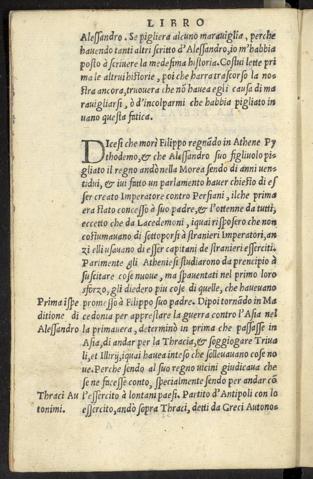 LIBRO
Alessandro. Se pigliera alcuno marauiglia, perche
hauendo tanti altri scritto d'Alessandro, io m'habbia
posto à scriuere la medesima historia. Costui lette pri
ma le altrui historie, poi che harra trascorso la no
stra ancora, truouera che nō hauea egli causa di ma
rauigliarsi, ò d'incolparmi che habbia pigliato in
uano questa fatica.
DIcesi che morì Filippo regnādo in Athene Py
thodemo, & che Alessandro suo figliuolo pi
gliato il regno andò nella Morea sendo di anni uen
tidui, & iui fatto un parlamento hauer chiesto di es
ser creato Imperatore contro Persiani, il che prima
era stato concesso à suo padre, & l'ottenne da tutti,
eccetto che da Lacedemoni, i quai risposero che non
costumauano di sottoporsi à stranieri Imperatori, an
zi elli usauano di esser capitani de stranieri esserciti.
Parimente gli Atheniesi studiarono da prencipio à
suscitare cose nuoue, ma spauentati nel primo loro
sforzo, gli diedero piu cose di quelle, che haueuano
Prima ispe promesso à Filippo suo padre. Dipoi tornādo in Ma
ditione di cedonia per apprestare la guerra contro l'Asia nel
Alessandro la primauera, determinò in prima che passasse in
Asia, di andar per la Thracia, & soggiogare Triua
li, et Illirij, i quai hauea inteso che solleuauano cose no
ue. Perche sendo al suo regno uicini giudicaua che
se ne facesse conto, spetialmente sendo per andar cō
Thraci Au l'essercito à lontani paesi. Partito d'Antipoli con lo
tonimi. essercito, andò sopra Thraci, detti da Greci Autono=